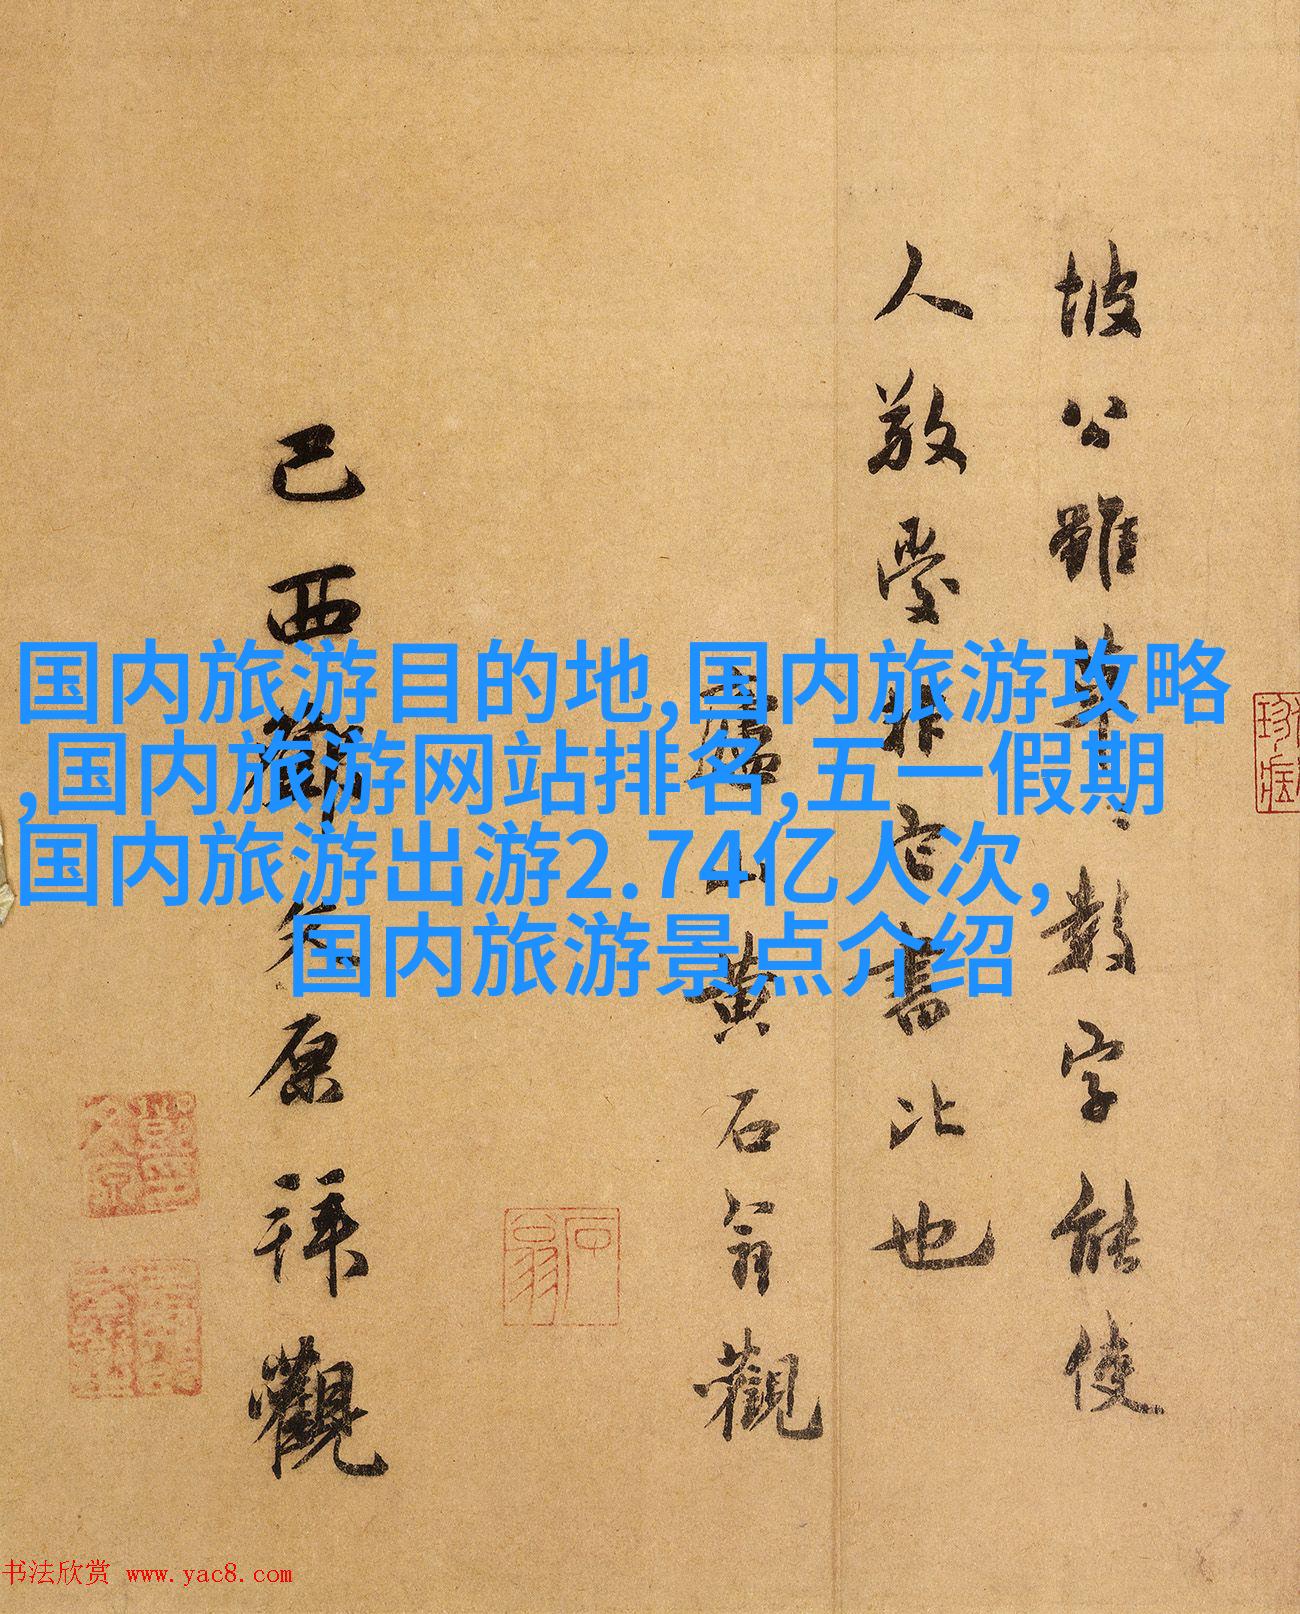 国内旅游目的地,国内旅游攻略
,国内旅游网站排名,五一假期
国内旅游出游2.74亿人次,
国内旅游景点介绍
坡公雖草草數字能使
人敬愛非它書比也
廬山黄石翁觀
己酉鄧文原拜觀
石翁
书法欣赏 www.yac8.com